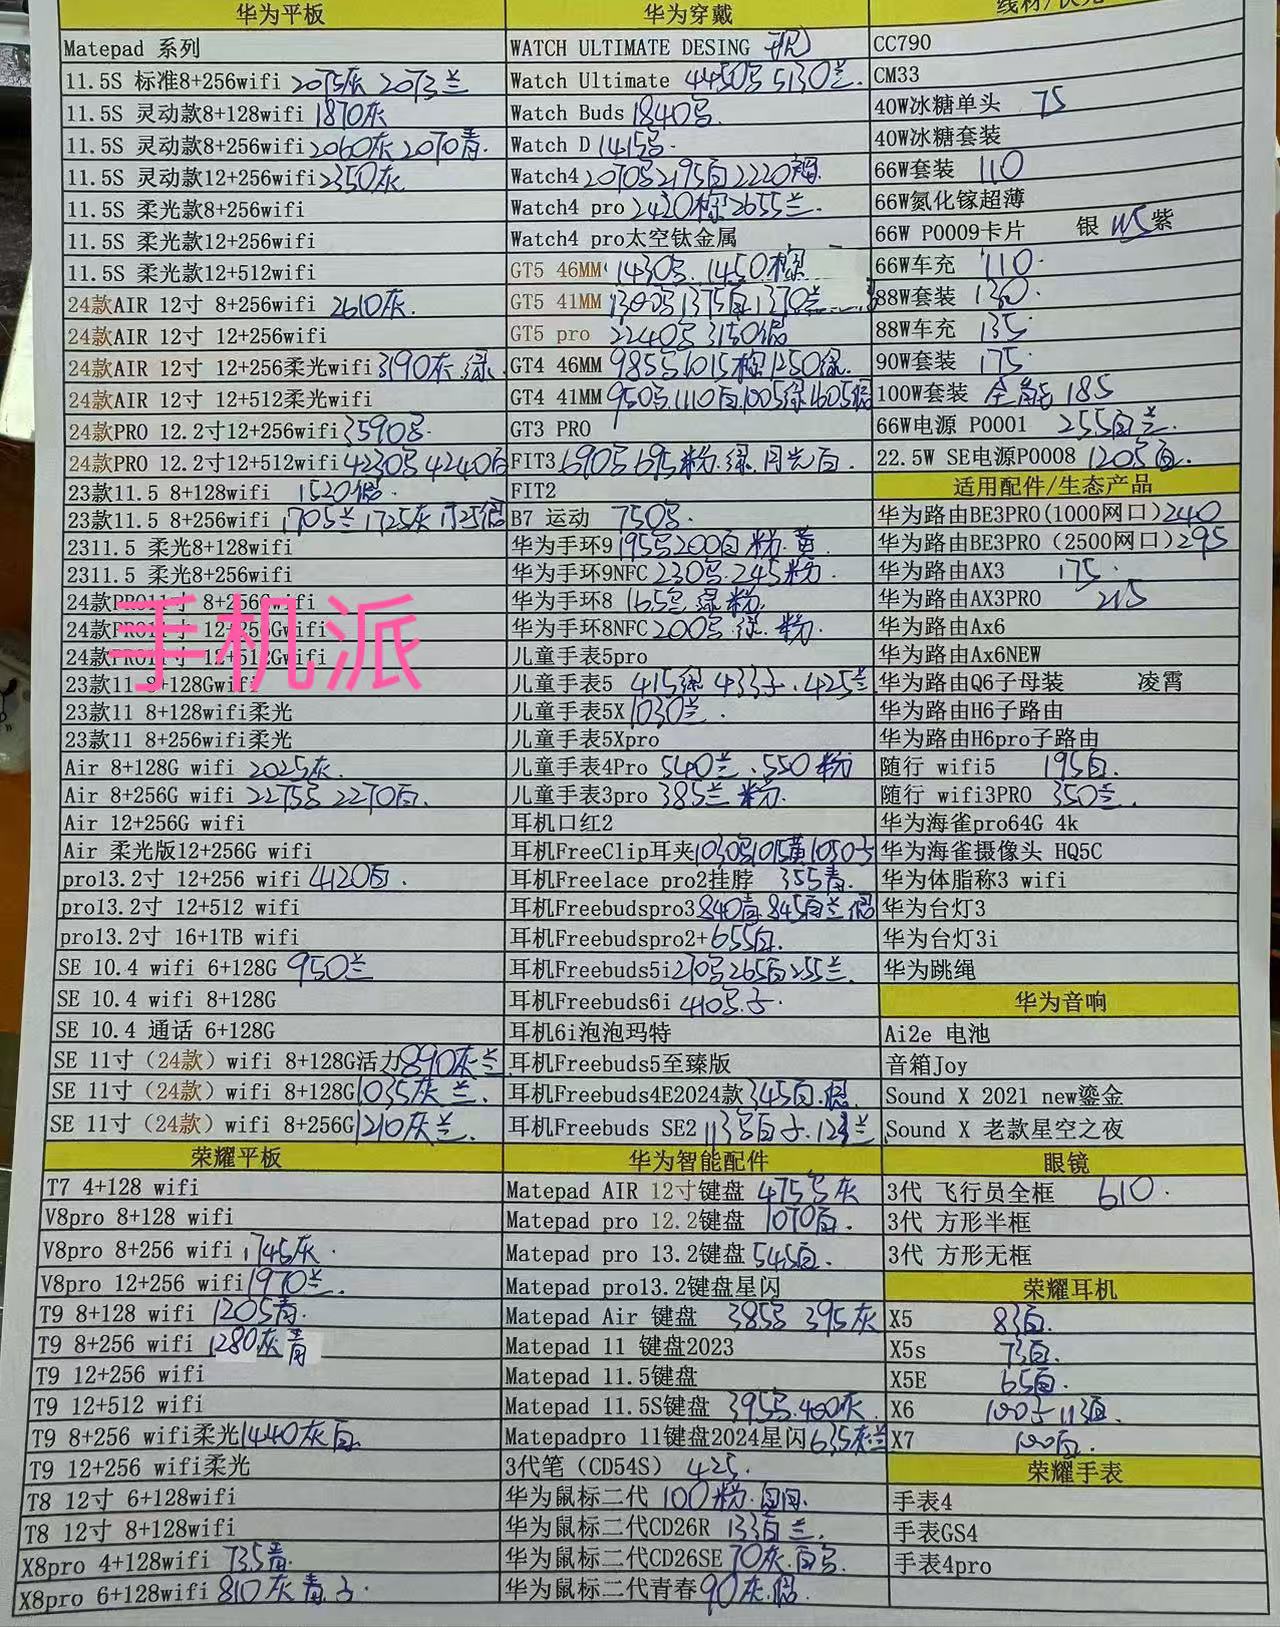 华为平板
Matepad 系列
11.5S 标准8+256wifi 2075灰 2073兰
11.5S 灵动款8+128wifi 1870灰
11.5S 灵动款8+256wifi 2060灰 2070青.
11.5S 灵动款12+256wifi 2350灰
11.5S 柔光款8+256wifi
11.5S 柔光款12+256wifi
11.5S 柔光款12+512wifi
24款AIR 12寸 8+256wifi 2610灰.
24款AIR 12寸 12+256wifi
24款AIR 12寸 12+256柔光wifi 3190灰.绿
24款AIR 12寸 12+512柔光wifi
24款PRO 12.2寸12+256wifi 3590
24款PRO 12.2寸12+512wifi 4230 4240白
23款11.5 8+128wifi 1520
23款11.5 8+256wifi 1705兰 1725灰 1725
2311.5 柔光8+128wifi
2311.5 柔光8+256wifi
24款PRO11寸 8+256Gwifi
24款PRO11寸 12+256Gwifi
24款PRO11寸 12+512Gwifi
手机派
23款11 8+128Gwifi
23款11 8+128wifi柔光
23款11 8+256wifi柔光
Air 8+128G wifi 2025灰.
Air 8+256G wifi 2275 2270白.
Air 12+256G wifi
Air 柔光版12+256G wifi
pro13.2寸 12+256 wifi 4120白.
pro13.2寸 12+512 wifi
pro13.2寸 16+1TB wifi
SE 10.4 wifi 6+128G 950兰
SE 10.4 wifi 8+128G
SE 10.4 通话 6+128G
SE 11寸（24款）wifi 8+128G活力 890灰兰
SE 11寸（24款）wifi 8+128G 1035灰 兰.
SE 11寸（24款）wifi 8+256G 1210灰兰.
荣耀平板
T7 4+128 wifi
V8pro 8+128 wifi
V8pro 8+256 wifi 1745灰.
V8pro 12+256 wifi 1970兰.
T9 8+128 wifi 1205青.
T9 8+256 wifi 1280灰青
T9 12+256 wifi
T9 12+512 wifi
T9 8+256 wifi柔光 1440灰白
T9 12+256 wifi柔光
T8 12寸 6+128wifi
T8 12寸 8+128wifi
X8pro 4+128wifi 735青.
X8pro 6+128wifi 810灰 青
华为穿戴
WATCH ULTIMATE DESING
Watch Ultimate 4450 5130兰.
Watch Buds 1840
Watch D 1415
Watch4 2070 2195白2220
Watch4 pro 2420棕2655兰.
Watch4 pro太空钛金属
GT5 46MM 1430 1450棕
GT5 41MM 1300 1375白1370兰
GT5 pro 2240 3150
GT4 46MM 985 1015棕1250绿.
GT4 41MM 950 1110白.1005绿1605
GT3 PRO
FIT3 690 695粉.绿.月光白.
FIT2
B7 运动 750
华为手环9 195 200白 粉.黄
华为手环9NFC 230 245粉.
华为手环8 165 绿 粉.
华为手环8NFC 200 绿.粉.
儿童手表5pro
儿童手表5 415绿 433 .425兰
儿童手表5X 1030兰.
儿童手表5Xpro
儿童手表4Pro 540兰.550粉
儿童手表3pro 385兰 粉.
耳机口红2
耳机FreeClip耳夹 1030 1015黄1050
耳机Freelace pro2挂脖 355青.
耳机Freebudspro3 840青 845白兰
耳机Freebudspro2+ 655白.
耳机Freebuds5i 270 265白255兰.
耳机Freebuds6i 410
耳机6i泡泡玛特
耳机Freebuds5至臻版
耳机Freebuds4E2024款 345白.
耳机Freebuds SE2 113白
华为智能配件
Matepad AIR 12寸键盘 475 灰
Matepad pro 12.2键盘 1070白.
Matepad pro 13.2键盘 545白.
Matepad pro13.2键盘星闪
Matepad Air 键盘 385 395灰
Matepad 11 键盘2023
Matepad 11.5键盘
Matepad 11.5S键盘 395 400灰
Matepadpro 11键盘2024星闪 635灰兰
3代笔（CD54S） 425.
华为鼠标二代 100粉.
华为鼠标二代CD26R 133白兰.
华为鼠标二代CD26SE 70灰.白
华为鼠标二代青春 90灰.
CC790
CM33
40W冰糖单头 75
40W冰糖套装
66W套装 110
66W氮化镓超薄
66W P0009卡片 银 115 紫
66W车充 110.
88W套装 130.
88W车充 135
90W套装 175
100W套装 全能 185
66W电源 P0001 255白兰.
22.5W SE电源P0008 1205白.
适用配件/生态产品
华为路由BE3PRO(1000网口) 240
华为路由BE3PRO（2500网口) 295
华为路由AX3 175.
华为路由AX3PRO 215
华为路由Ax6
华为路由Ax6NEW
华为路由Q6子母装 凌霄
华为路由H6子路由
华为路由H6pro子路由
随行 wifi5 195白.
随行 wifi3PRO 350兰.
华为海雀pro64G 4k
华为海雀摄像头 HQ5C
华为体脂称3 wifi
华为台灯3
华为台灯3i
华为跳绳
华为音响
Ai2e 电池
音箱Joy
Sound X 2021 new鎏金
Sound X 老款星空之夜
眼镜
3代 飞行员全框 610.
3代 方形半框
3代 方形无框
荣耀耳机
X5 83白.
X5s 73白.
X5E 65白.
X6 100 113白.
X7 100白.
荣耀手表
手表4
手表GS4
手表4pro